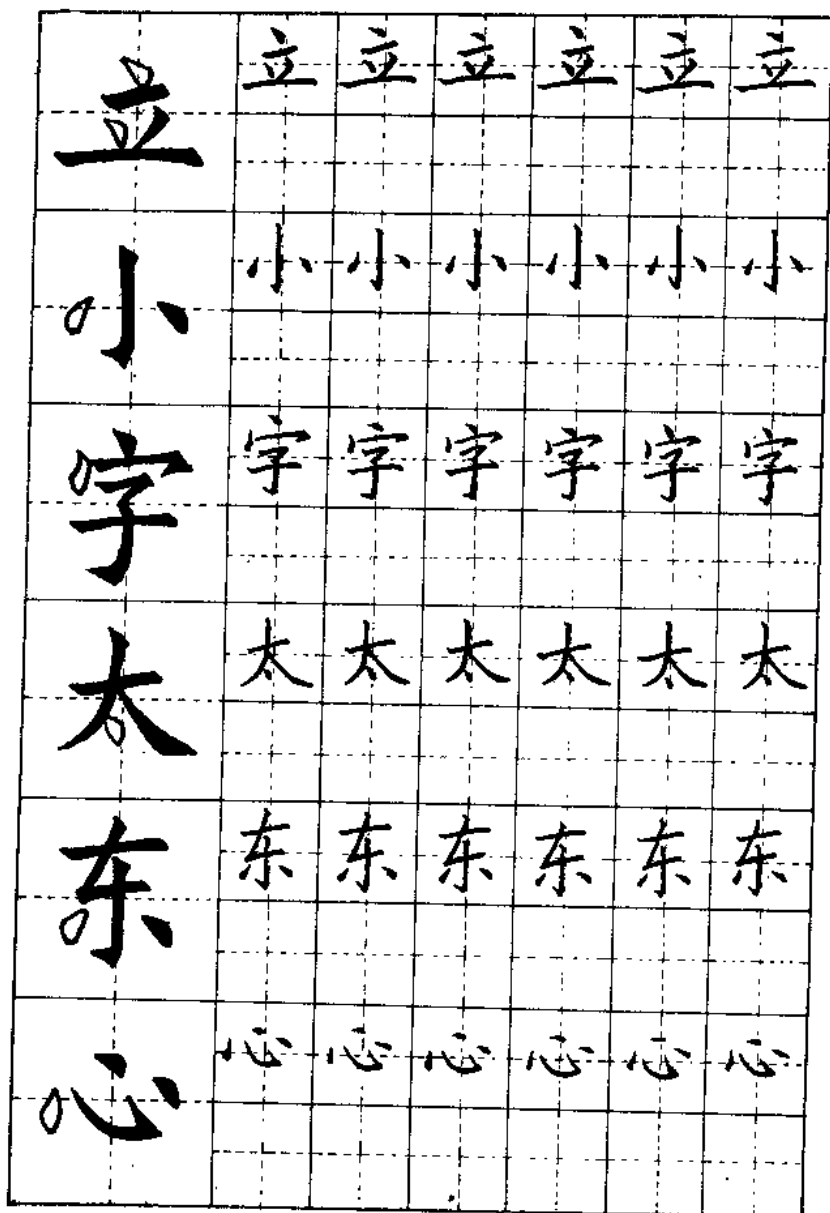 立 立 立 立 立 立 立
小 小 小 小 小 小 小
字 字 字 字 字 字 字
太 太 太 太 太 太 太
东 东 东 东 东 东 东
心 心 心 心 心 心 心